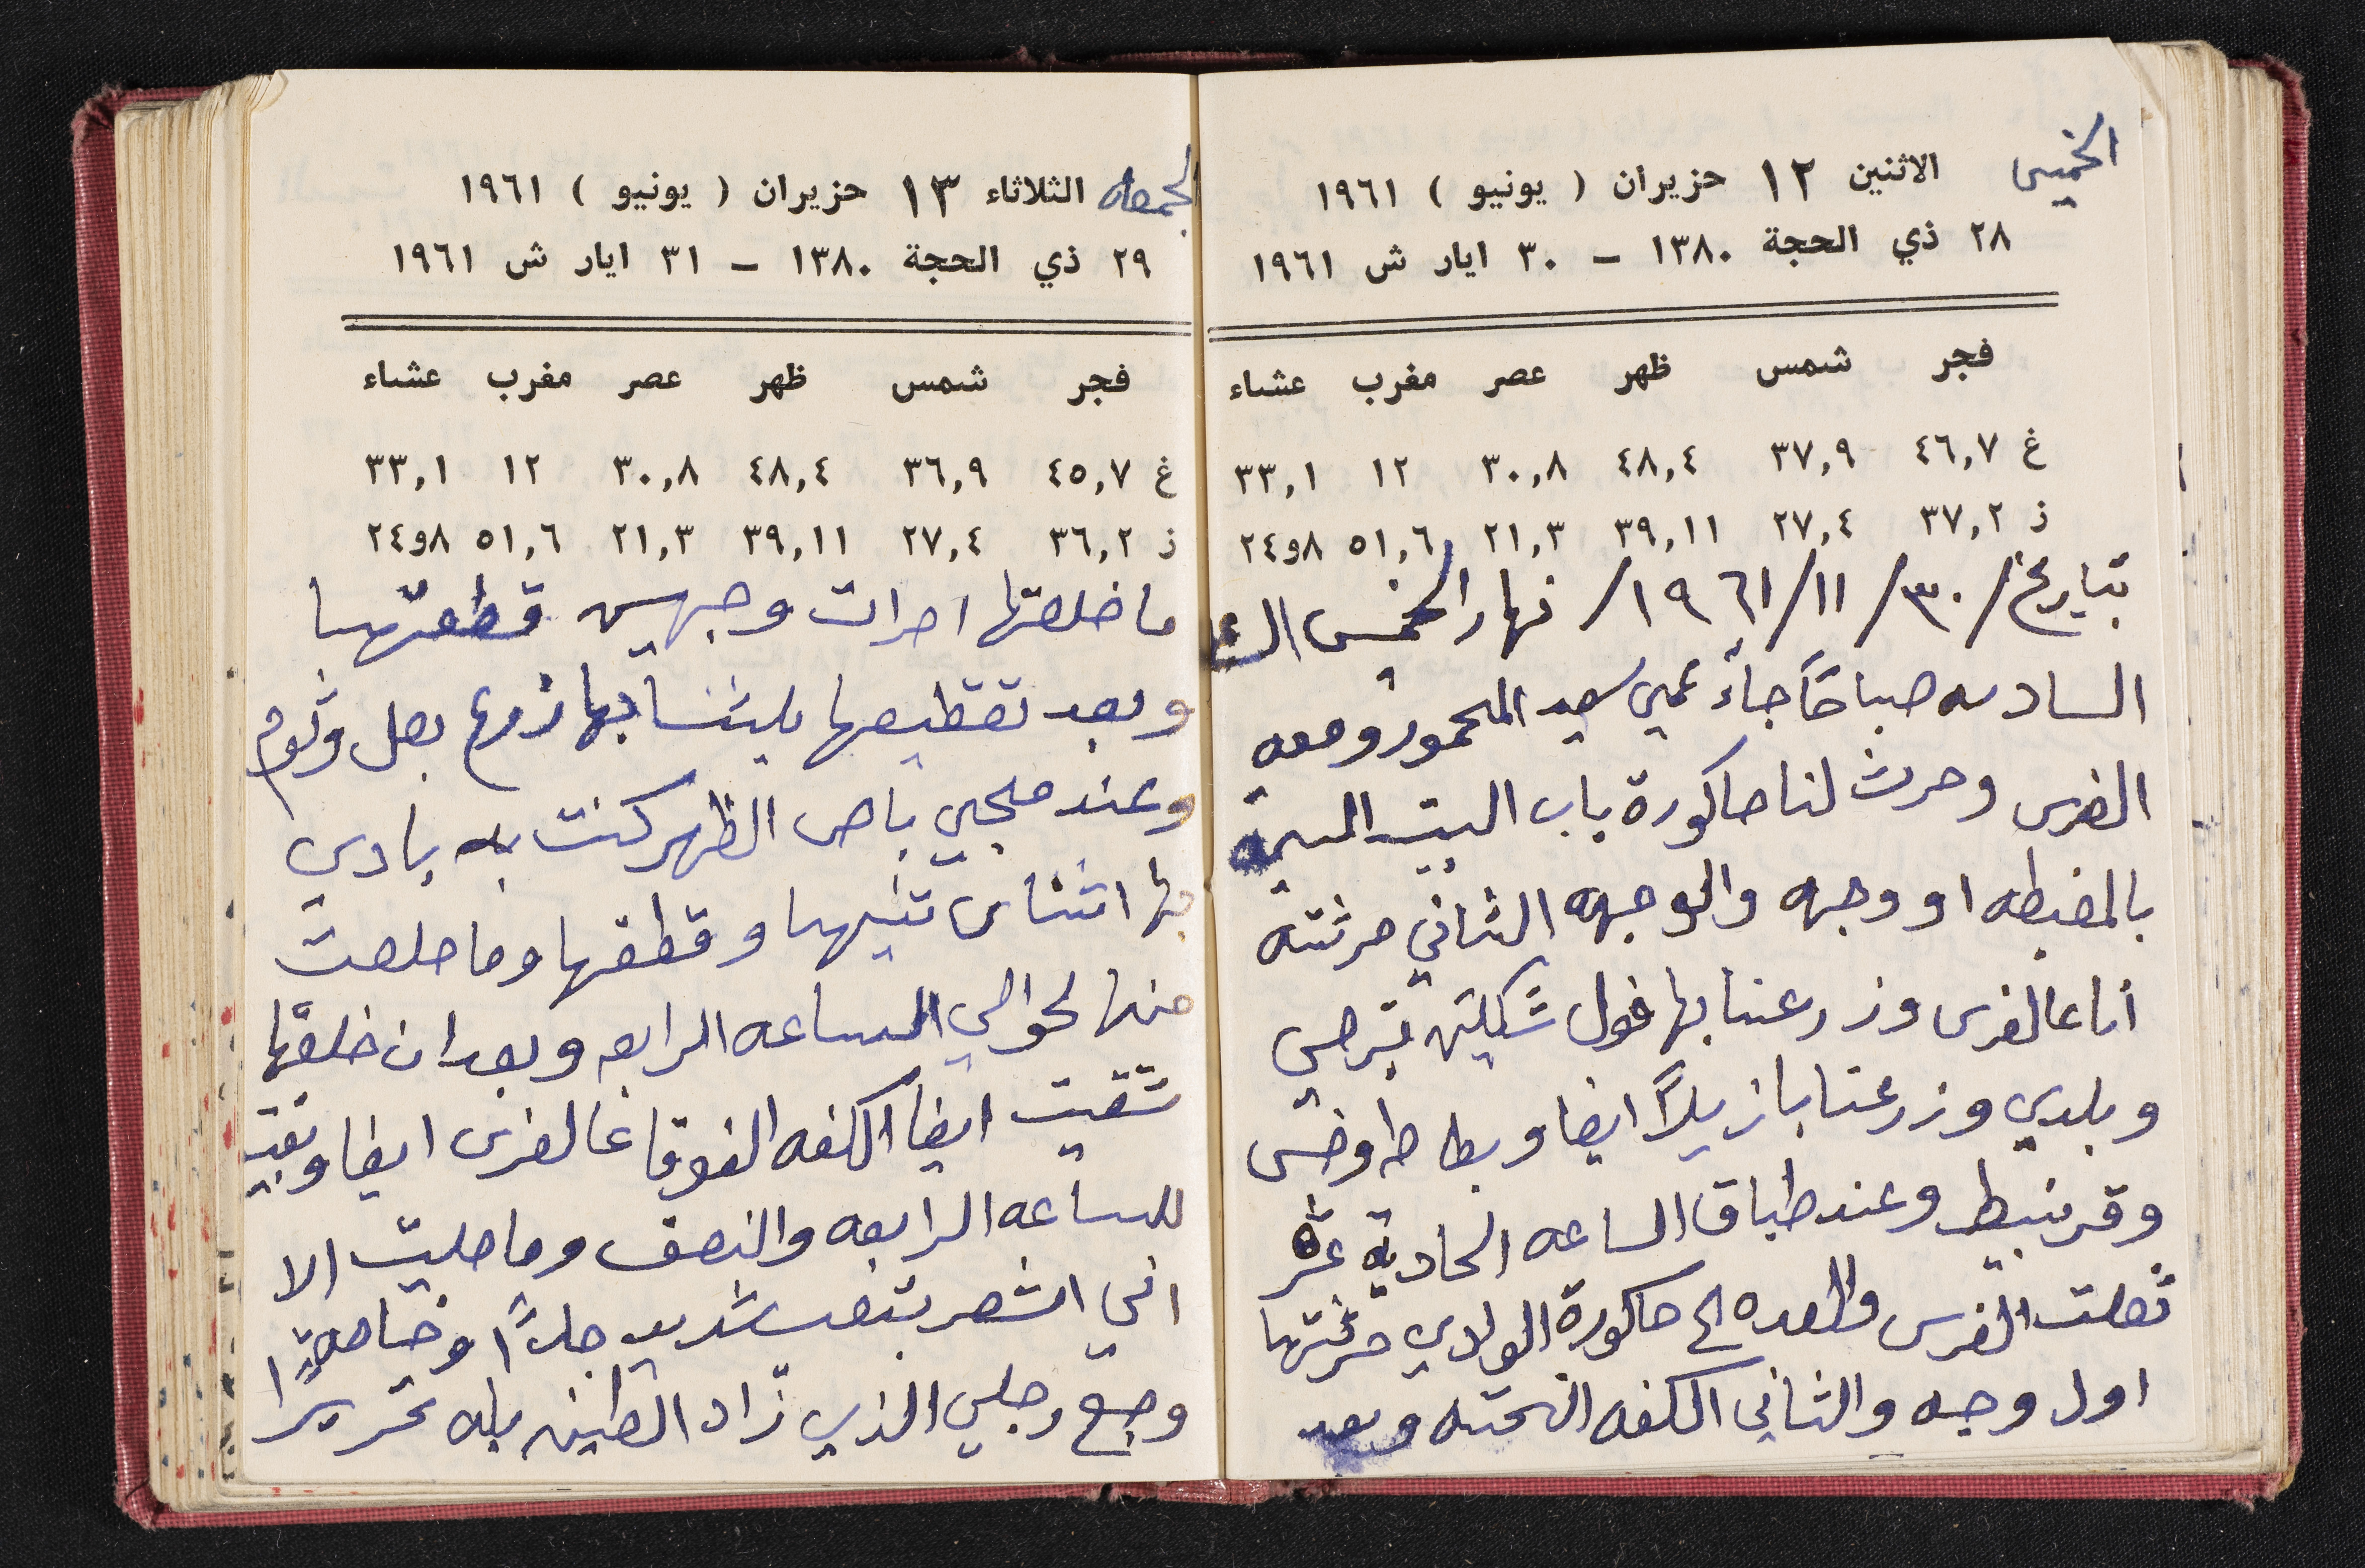 الخميس
الاثنين ١٢ حزيران ( يونيو ) ١٩٦١
٢٨ ذي الحجة ١٣٨٠ – ٣٠ ايار ش ١٩٦١
فجر شمس ظهر عصر مغرب عشاء
غ ٤٦,٧ ٣٧,٩ ٤٨,٤ ٣٠,٨ ١٢ ٣٣,١
ز ٣٧,٢ ٢٧,٤ ٣٩,١١ ٢١,٣ ٥١,٦ ٨و٢٤
بتاريخ /٣٠/١١/١٩٦١/ نهار الخميس
السادسه صباحًا جاء عمي سعيد المحمود ومعه
الفرس وحرث لنا حاكورة باب البيت
اول وجه والوجهه الثاني حرثته
أنا عالفرس وزرعنا بها فول شكلين قبرصي
وبلدي وزرعنا بازيلاً ايضا وبطاطا وخس
وقرنبيط وعند طباق الساعه الحادية عشره
نقلت الفرس والعده الى حاكورة الوادي حرثتها
اول وجه والثاني الكفه التحته وبعد
الجمعه
الثلاثاء ١٣ حزيران ( يونيو ) ١٩٦١
٢٩ ذي الحجة ١٣٨٠ – ٣١ ايار ش ١٩٦١
فجر شمس ظهر عصر مغرب عشاء
غ ٤٥,٧ ٣٦,٩ ٤٨,٤ ٣٠,٨ ١٢ ٣٣,١
ز ٣٦,٢ ٢٧,٤ ٣٩,١١ ٢١,٣ ٥١,٦ ٨و٢٤
ما خلصتها احراث وجهين قطعتها
وبعد تقطيعها بلشنا بها زرع بصل وثوم
وعند مجيي باص الظهر كنت بادي
بها اثناي تنيها وقطعها وما خلصت
منها لحوالي الساعه الرابعه وبعد ان خلصتها
شقيت ايضا الكفه الفوقا عالفرس ايضا وبقيت
للساعه الرابعه والنصف وما خليت الا
اني اشعر بتعب شديد جدًا وخاصةً
وجع رجلي الذي زاد الطين بله تحريرًا